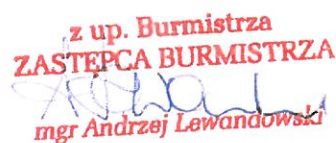 z up. Burmistrza
ZASTĘPCA BURMISTRZA
mgr Andrzej Lewandowski